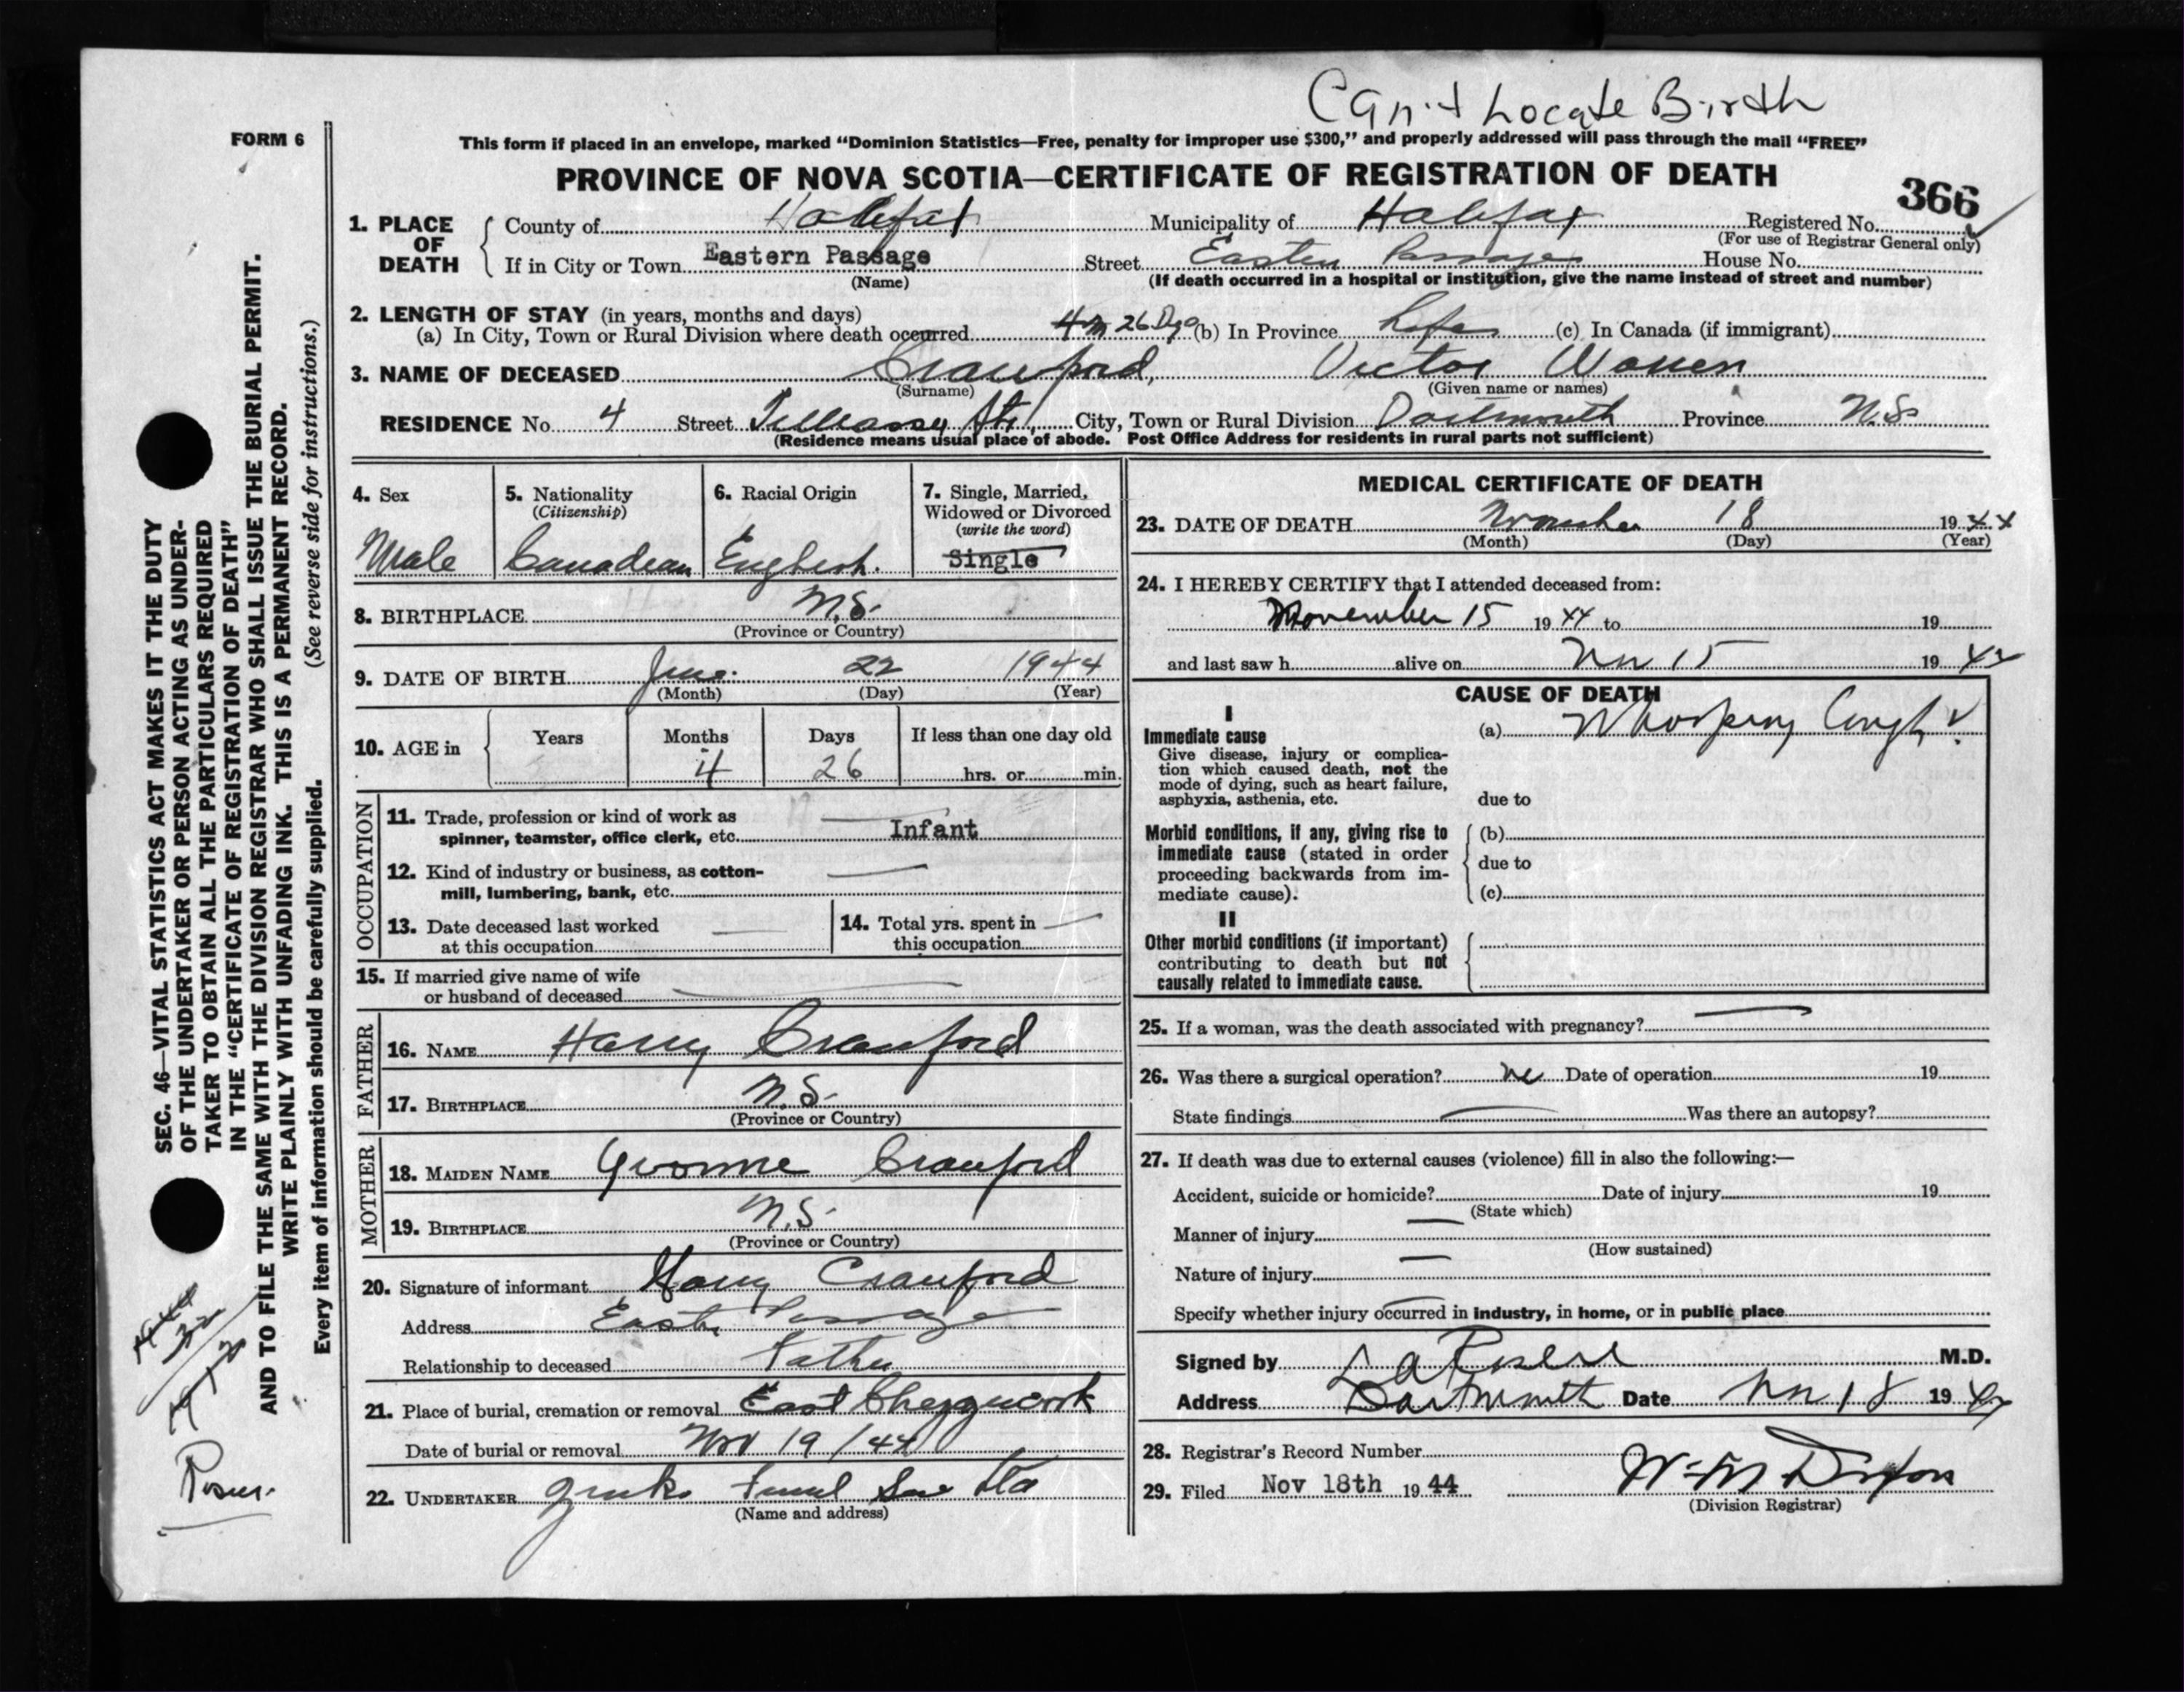 Can't Locate Birth
FORM 6
This form if placed in an envelope, marked “Dominion Statistics—Free, penalty for improper use $300,” and properly addressed will pass through the mail “FREE”
PROVINCE OF NOVA SCOTIA—CERTIFICATE OF REGISTRATION OF DEATH
366
1. PLACE OF DEATH
County of Halifax Municipality of Halifax Registered No.
(For use of Registrar General only)
If in City or Town Eastern Passage Street Eastern Passage House No.
(Name) (If death occurred in a hospital or institution, give the name instead of street and number)
2. LENGTH OF STAY (in years, months and days)
(a) In City, Town or Rural Division where death occurred 4 m 26 Dys (b) In Province Life (c) In Canada (if immigrant)
3. NAME OF DECEASED Crawford, Victor Warren
(Surname) (Given name or names)
RESIDENCE No. 4 Street St., City, Town or Rural Division Dartmouth Province N.S.
(Residence means usual place of abode. Post Office Address for residents in rural parts not sufficient)
4. Sex
Male
5. Nationality
(Citizenship)
Canadian
6. Racial Origin
English.
7. Single, Married,
Widowed or Divorced
(write the word)
Single
8. BIRTHPLACE N.S.
(Province or Country)
9. DATE OF BIRTH June 22 1944
(Month) (Day) (Year)
10. AGE in
Years Months Days If less than one day old
4 26 hrs. or min.
OCCUPATION
11. Trade, profession or kind of work as
spinner, teamster, office clerk, etc. Infant
12. Kind of industry or business, as cotton-
mill, lumbering, bank, etc.
13. Date deceased last worked
at this occupation
14. Total yrs. spent in
this occupation
15. If married give name of wife
or husband of deceased
FATHER
16. NAME Harry Crawford
17. BIRTHPLACE N.S.
(Province or Country)
MOTHER
18. MAIDEN NAME Yvonne Crawford
19. BIRTHPLACE N.S.
(Province or Country)
20. Signature of informant Harry Crawford
Address Eastern Passage
Relationship to deceased Father
21. Place of burial, cremation or removal East Chezzetcook
Date of burial or removal Nov 19/44
22. UNDERTAKER
(Name and address)
MEDICAL CERTIFICATE OF DEATH
23. DATE OF DEATH November 18 1944
(Month) (Day) (Year)
24. I HEREBY CERTIFY that I attended deceased from:
November 15 1944 to 19
and last saw h alive on Nov 15 1944
CAUSE OF DEATH
I
Immediate cause
Give disease, injury or complica-
tion which caused death, not the
mode of dying, such as heart failure,
asphyxia, asthenia, etc.
(a) Whooping Cough
due to
Morbid conditions, if any, giving rise to
immediate cause (stated in order
proceeding backwards from im-
mediate cause).
(b)
due to
(c)
II
Other morbid conditions (if important)
contributing to death but not
causally related to immediate cause.
25. If a woman, was the death associated with pregnancy?
26. Was there a surgical operation? no Date of operation 19
State findings Was there an autopsy?
27. If death was due to external causes (violence) fill in also the following:—
Accident, suicide or homicide? Date of injury 19
(State which)
Manner of injury
(How sustained)
Nature of injury
Specify whether injury occurred in industry, in home, or in public place
Signed by M.D.
Address Dartmouth Date Nov 18 1944
28. Registrar's Record Number
29. Filed Nov 18th 1944
(Division Registrar)
SEC. 46—VITAL STATISTICS ACT MAKES IT THE DUTY
OF THE UNDERTAKER OR PERSON ACTING AS UNDER-
TAKER TO OBTAIN ALL THE PARTICULARS REQUIRED
IN THE “CERTIFICATE OF REGISTRATION OF DEATH”
AND TO FILE THE SAME WITH THE DIVISION REGISTRAR WHO SHALL ISSUE THE BURIAL PERMIT.
WRITE PLAINLY WITH UNFADING INK. THIS IS A PERMANENT RECORD.
Every item of information should be carefully supplied. (See reverse side for instructions.)